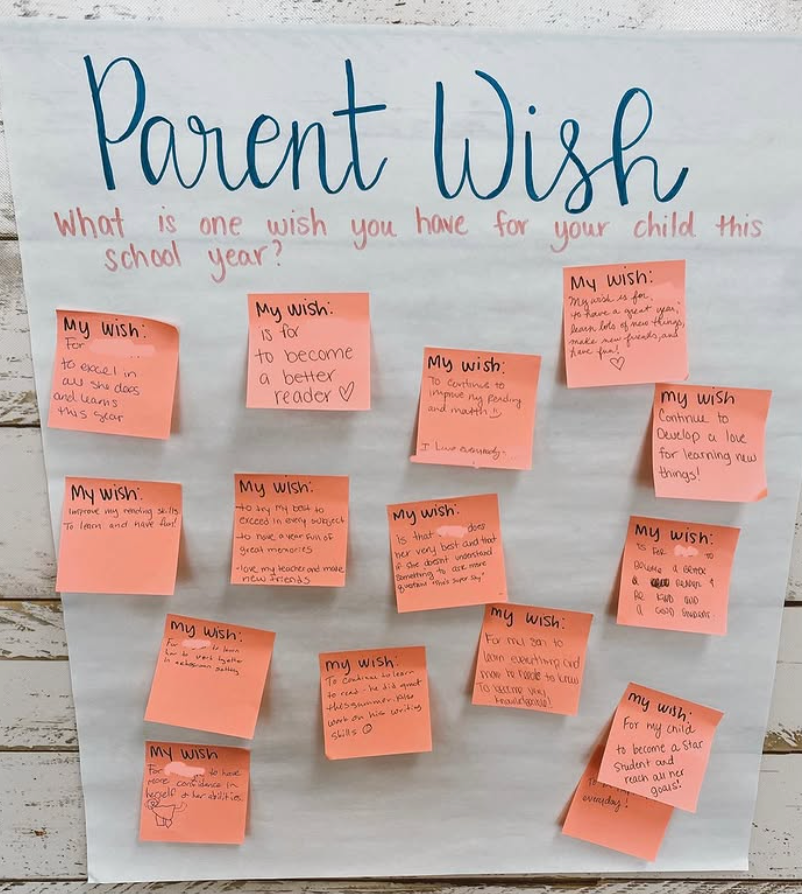 Parent Wish
What is one wish you have for your child this
school year?
My wish:
For
to excel in
all she does
and learns
this year
My wish:
is for
to become
a better
reader ♡
My wish:
To continue to
improve my Reading
and math
I Love everybody.
My wish:
My wish is for
to have a great year,
learn lots of new things,
make new friends, and
have fun!
♡
My wish
Continue to
Develop a love
for learning new
things!
My wish:
Improve my reading skills
To learn and have fun!
My wish:
-to try my best to
exceed in every subject
-to have a year fun of
great memories
-love my teacher and make
new friends
My wish:
is that does
her very best and that
if she doesnt understand
something to ask more
My wish:
Is for to
become a
a reader &
be kind and
a good student.
My wish:
For to learn
how to work together
in a classroom setting
My wish:
To continue to learn
to read - he did great
this summer. Also
work on his writing
skills ☺
My wish:
For my son to
learn everything and
more he needs to know
To become very
knowledgeable!
My wish:
For my child
to become a star
student and
reach all her
goals!
everyday!
My wish
For to have
more confidence in
herself & her abilities